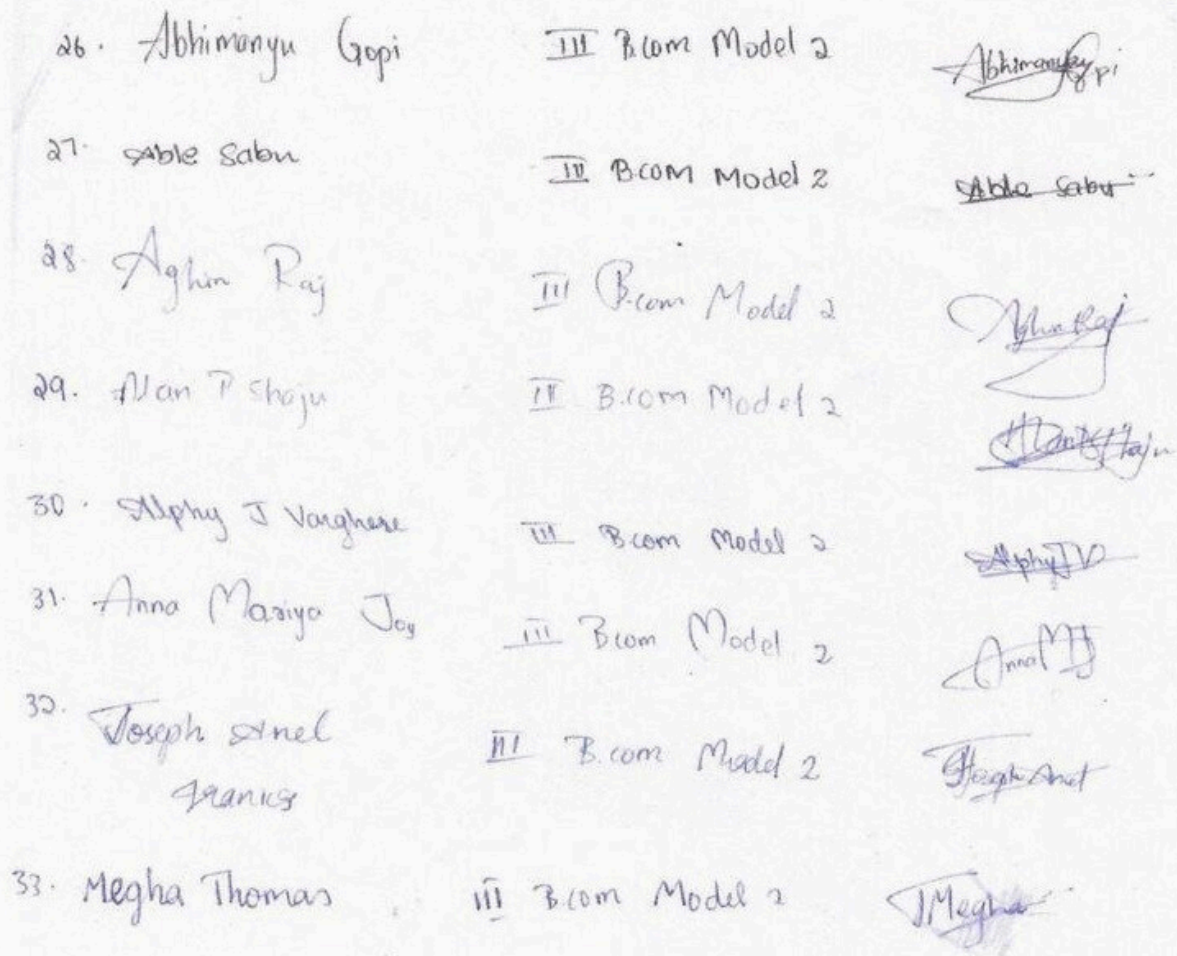 26. Abhimanyu Gopi III B.com Model 2 Abhimanyu Gopi
27. Able Sabu III B.com Model 2 Able Sabu
28. Aghin Raj III B.com Model 2 Aghin Raj
29. Alan P Shaju III B.com Model 2 Alan P Shaju
30. Alphy J Varghese III B.com Model 2 Alphy J V
31. Anna Mariya Joy III B.com Model 2 Anna M J
32. Joseph Anel III B.com Model 2 Joseph Anel
Franics
33. Megha Thomas III B.com Model 2 Megha